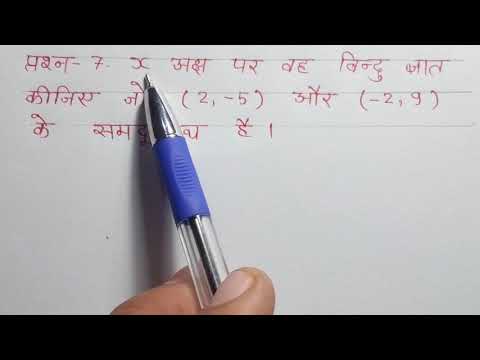 प्रश्न- 7. x अक्ष पर वह बिन्दु ज्ञात
कीजिए जो (2, -5) और (-2, 9)
के है।